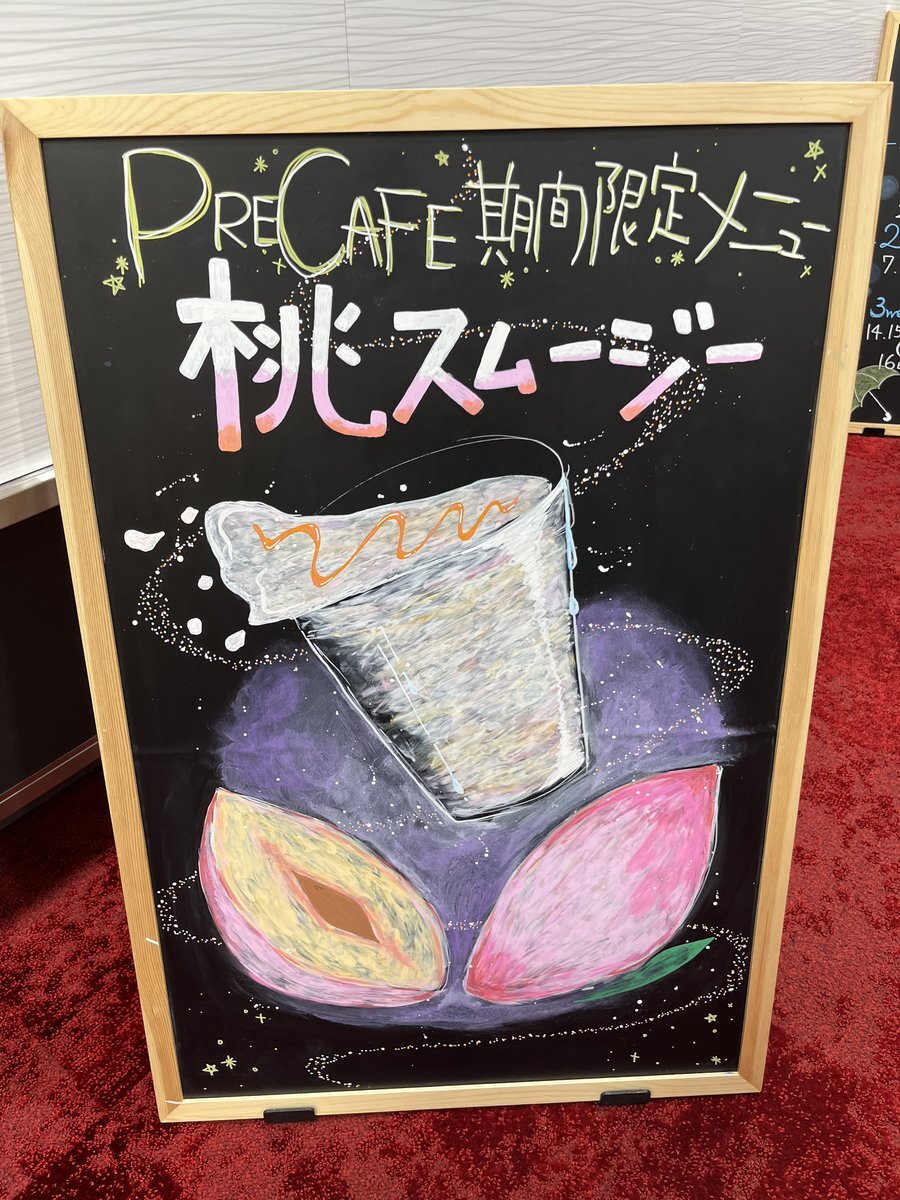 PRECAFE 期間限定メニュー
桃スムージー
2
7
3we
14.15
16